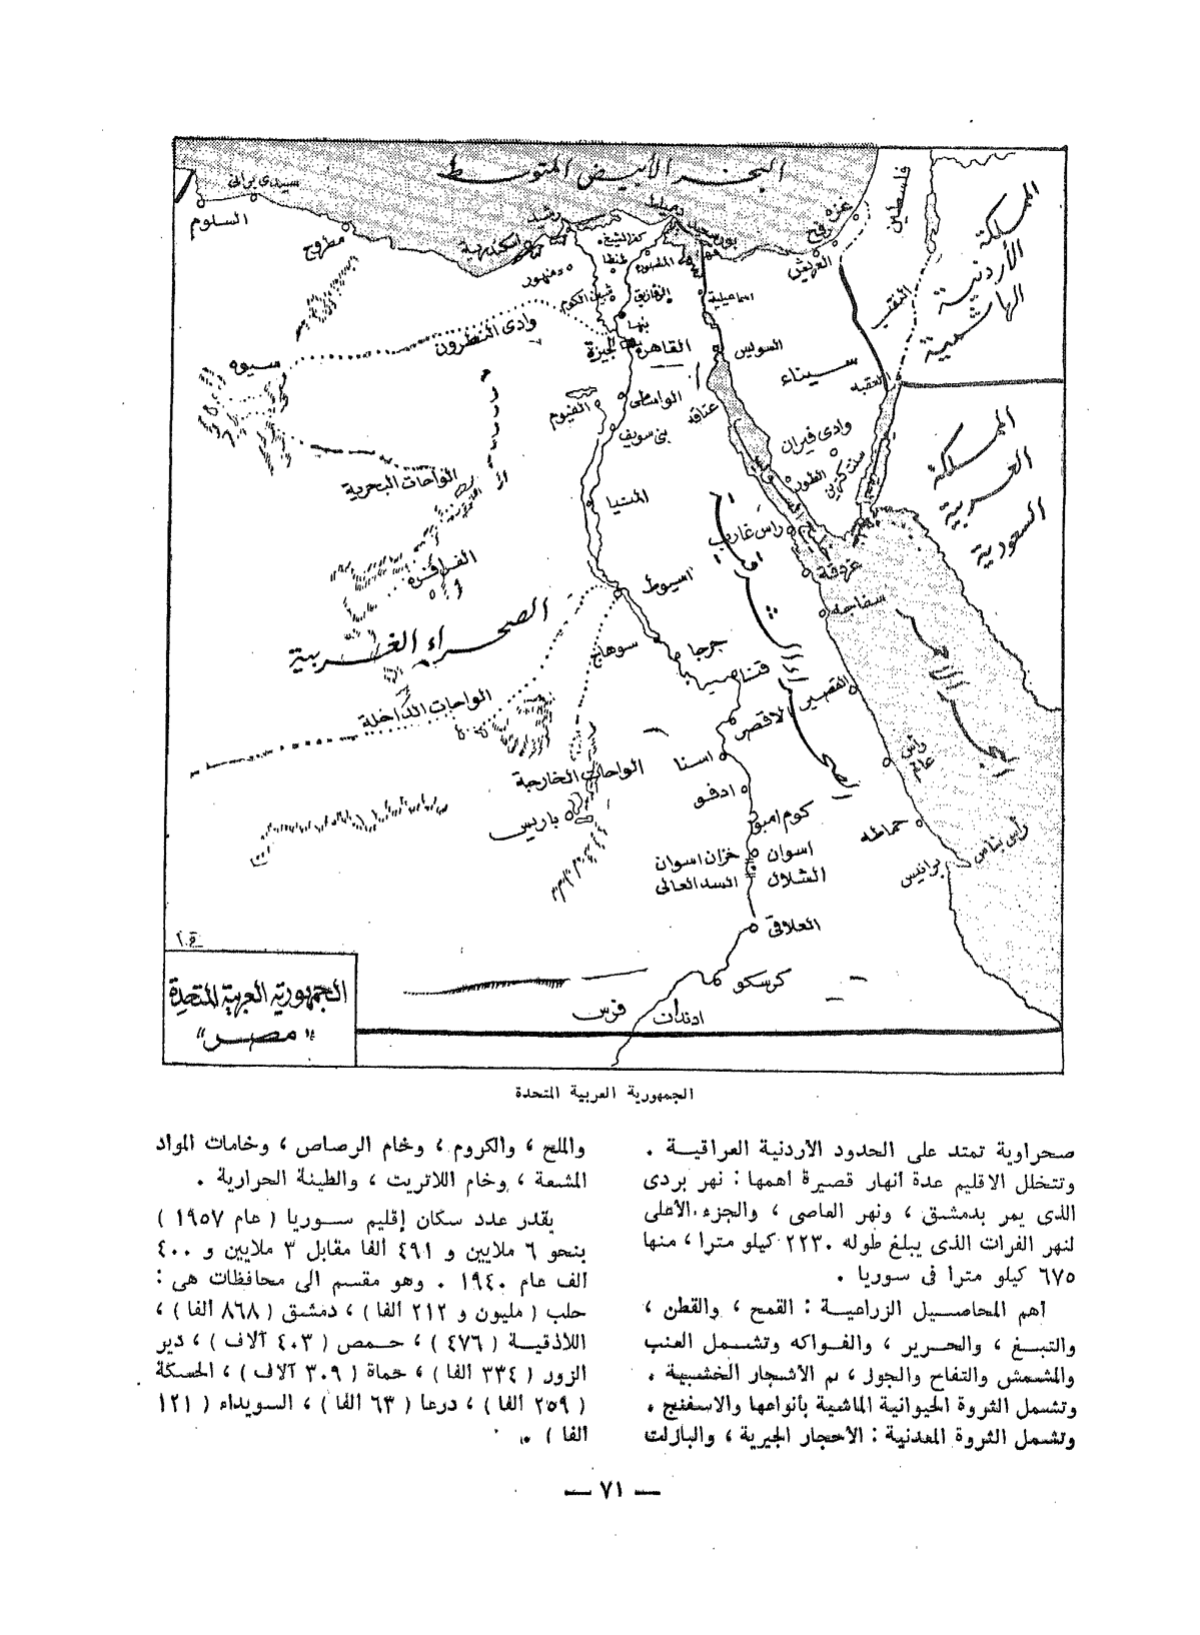 البحر الأبيض المتوسط
سيدى برانى
السلوم
مطروح
اسكندرية
رشيد
دمياط
بورسعيد
كفر الشيخ
طنطا
المنصورة
دمنهور
شبين الكوم
الزقازيق
بنها
اسماعيلية
العريش
رفح
غزه
فلسطين
النقب
المملكة
الأردنية
الهاشمية
وادى النطرون
سيوه
الجيزة
القاهرة
السويس
سيناء
العقبه
الفيوم
الواسطى
بنى سويف
عتاقه
وادى فيران
الطور
سنت كترين
المملكة
العربية
السعودية
الواحات البحرية
المنيا
رأس غارب
الفرافرة
اسيوط
غردقة
سفاجه
الصحراء الغربية
الصحراء الشرقية
البحر الأحمر
سوهاج
جرجا
قنا
القصير
الاقصر
الواحات الداخلة
الواحات الخارجة
اسنا
ادفو
باريس
كوم امبو
خزان اسوان
اسوان
السد العالى
الشلال
رأس
علم
حماطه
برانيس
رأس بناس
العلاقى
كرسكو
ادندان
فرس
الجمهورية العربية المتحدة
"مصر"
الجمهورية العربية المتحدة
صحراوية تمتد على الحدود الأردنية العراقيـة .
وتتخلل الاقليم عدة أنهار قصيرة أهمها : نهر بردى
الذى يمر بدمشق ، ونهر العاصى ، والجزء الأعلى
لنهر الفرات الذى يبلغ طوله ٢٢٣٠ كيلو مترا ، منها
٦٧٥ كيلو مترا فى سوريا .
أهم المحاصيل الزراعية : القمح ، والقطن ،
والتبغ ، والحرير ، والفواكه وتشمل العنب
والمشمش والتفاح والجوز ، ثم الأشجار الخشبية .
وتشمل الثروة الحيوانية الماشية بأنواعها والاسفنج .
وتشمل الثروة المعدنية : الأحجار الجيرية ، والبازلت
والملح ، والكروم ، وخام الرصاص ، وخامات المواد
المشعة ، وخام اللاتريت ، والطينة الحرارية .
يقدر عدد سكان إقليم سوريا ( عام ١٩٥٧ )
بنحو ٦ ملايين و ٤٩١ الفا مقابل ٣ ملايين و ٤٠٠
الف عام ١٩٤٠ . وهو مقسم الى محافظات هى :
حلب ( مليون و ٢١٢ الفا ) ، دمشق ( ٨٦٨ الفا ) ،
اللاذقية ( ٤٧٦ ) ، حمص ( ٤٠٣ آلاف ) ، دير
الزور ( ٣٣٤ الفا ) ، حماة ( ٣٠٩ آلاف ) ، الحسكة
( ٢٥٩ الفا ) ، درعا ( ٦٣ الفا ) ، السويداء ( ١٢١
الفا ) .
— ٧١ —